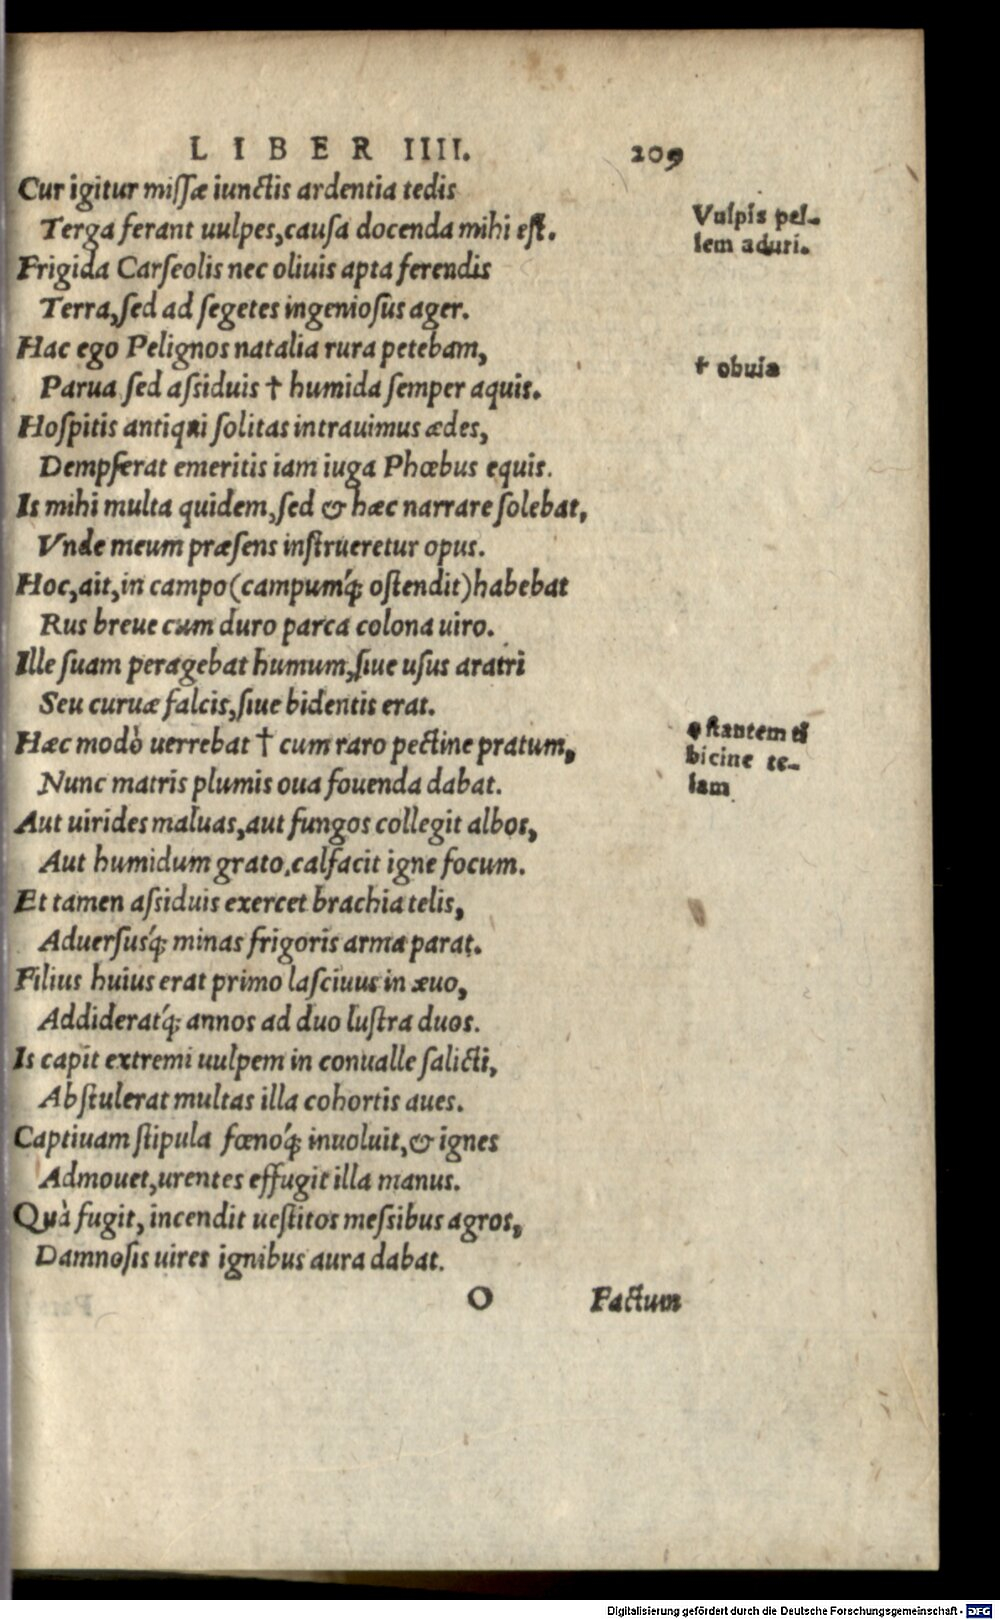 LIBER IIII. 209
Cur igitur missæ iunctis ardentia tedis
Terga ferant uulpes, causa docenda mihi est.
Vulpis pel-
lem aduri.
Frigida Carseolis nec oliuis apta ferendis
Terra, sed ad segetes ingeniosus ager.
Hac ego Pelignos natalia rura petebam,
Parua sed assiduis † humida semper aquis.
† obuia
Hospitis antiqui solitas intrauimus ædes,
Dempserat emeritis iam iuga Phœbus equis.
Is mihi multa quidem, sed & hæc narrare solebat,
Vnde meum præsens instrueretur opus.
Hoc, ait, in campo (campumq́; ostendit) habebat
Rus breue cum duro parca colona uiro.
Ille suam peragebat humum, siue usus aratri
Seu curuæ falcis, siue bidentis erat.
Hæc modò uerrebat † cum raro pectine pratum,
stantem ti
bicine te-
lam
Nunc matris plumis oua fouenda dabat.
Aut uirides maluas, aut fungos collegit albos,
Aut humidum grato, calfacit igne focum.
Et tamen assiduis exercet brachia telis,
Aduersusq́; minas frigoris arma parat.
Filius huius erat primo lasciuus in æuo,
Addideratq́; annos ad duo lustra duos.
Is capit extremi uulpem in conualle salicti,
Abstulerat multas illa cohortis aues.
Captiuam stipula fœnoq́; inuoluit, & ignes
Admouet, urentes effugit illa manus.
Quà fugit, incendit uestitos messibus agros,
Damnosis uires ignibus aura dabat.
O Factum
Digitalisierung gefördert durch die Deutsche Forschungsgemeinschaft - DFG